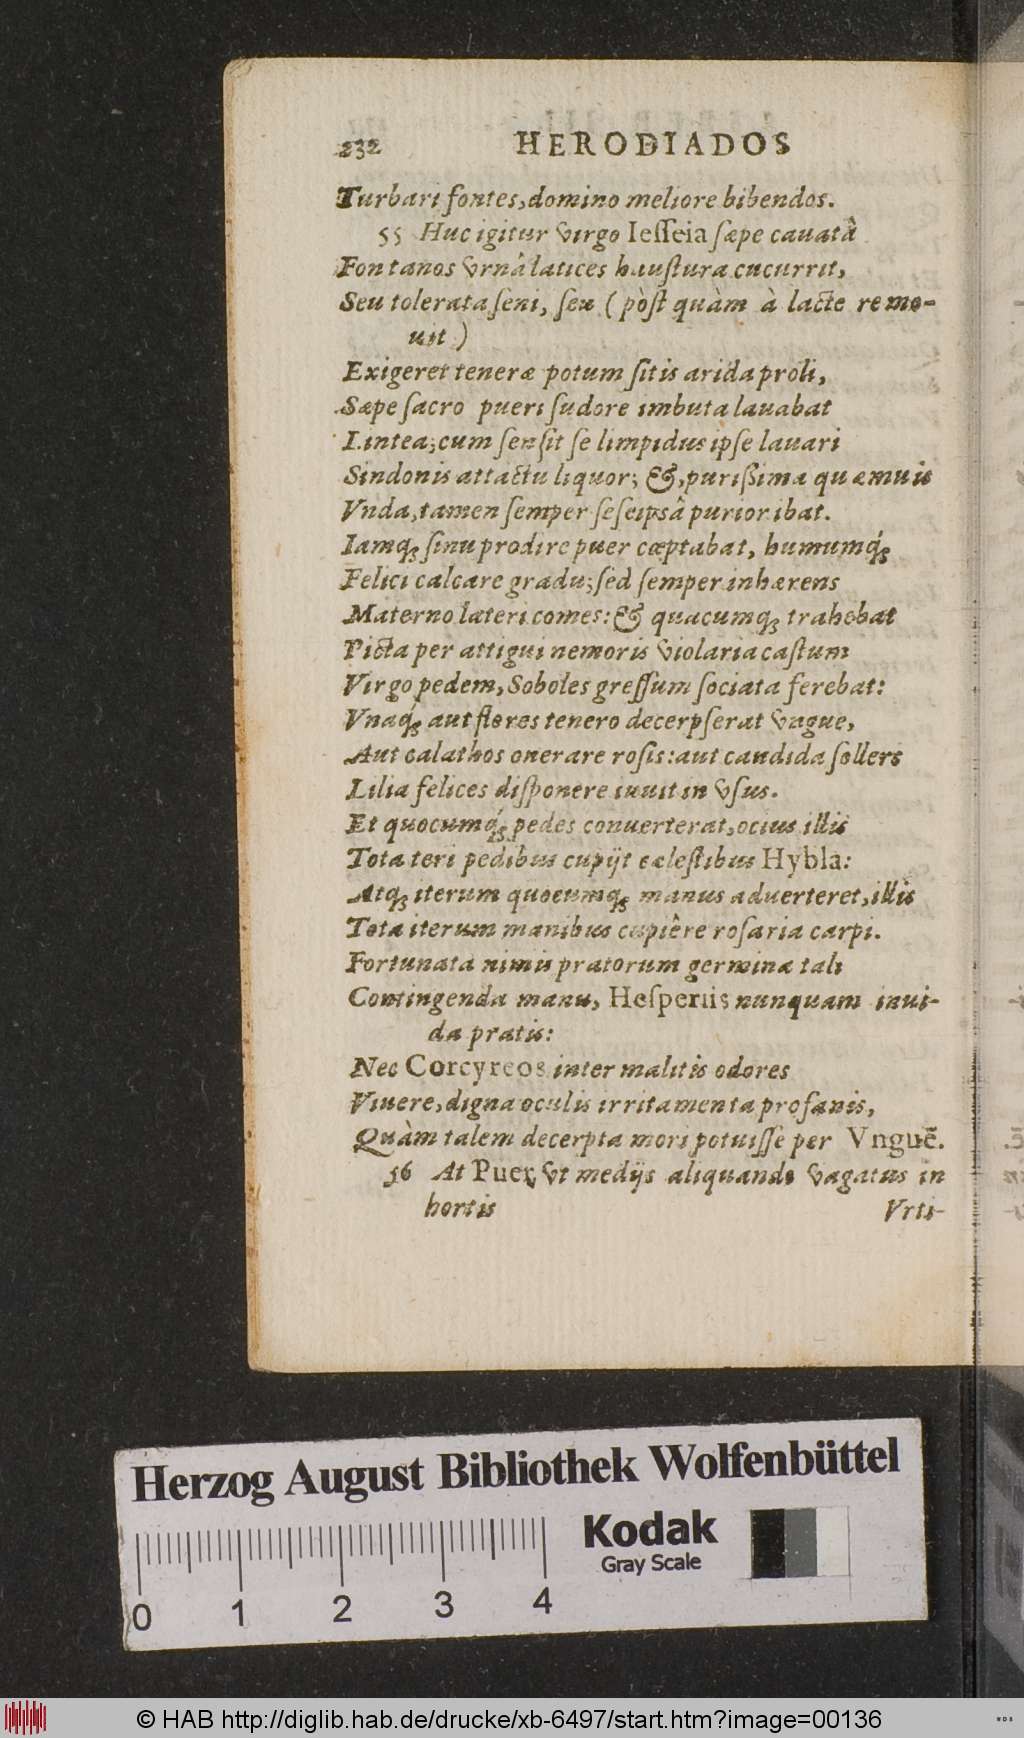 232 HERODIADOS
Turbari fontes, domino meliore bibendos.
55 Huc igitur virgo Iesseia sæpe cauatâ
Fontanos vrnâ latices haustura cucurrit,
Seu tolerata seni, seu ( pòst quàm à lacte remo-
uit )
Exigeret teneræ potum sitis arida proli,
Sæpe sacro pueri sudore imbuta lauabat
Lintea; cum sensit se limpidus ipse lauari
Sindonis attactu liquor; &, purißima quæmuis
Vnda, tamen semper seseipsâ purior ibat.
Iamq; sinu prodire puer cœptabat, humumq́;
Felici calcare gradu; sed semper inhærens
Materno lateri comes: & quacumq; trahebat
Picta per attigui nemoris violaria castum
Virgo pedem, Soboles gressum sociata ferebat:
Vnaq́; aut flores tenero decerpserat vngue,
Aut calathos onerare rosis: aut candida sollers
Lilia felices disponere iuuit in vsus.
Et quocumq́; pedes conuerterat, ocius illis
Tota teri pedibus cupijt cælestibus Hybla:
Atq; iterum quocumq; manus aduerteret, illis
Tota iterum manibus cupiêre rosaria carpi.
Fortunata nimis pratorum germina tali
Contingenda manu, Hesperiis nunquam inui-
da pratis:
Nec Corcyreos inter malitis odores
Viuere, digna oculis irritamenta profanis,
Quàm talem decerpta mori potuisse per Vnguē.
56 At Puer, vt medijs aliquando vagatus in
hortis Vrti-
Herzog August Bibliothek Wolfenbüttel
Kodak
Gray Scale
0 1 2 3 4
© HAB http://diglib.hab.de/drucke/xb-6497/start.htm?image=00136